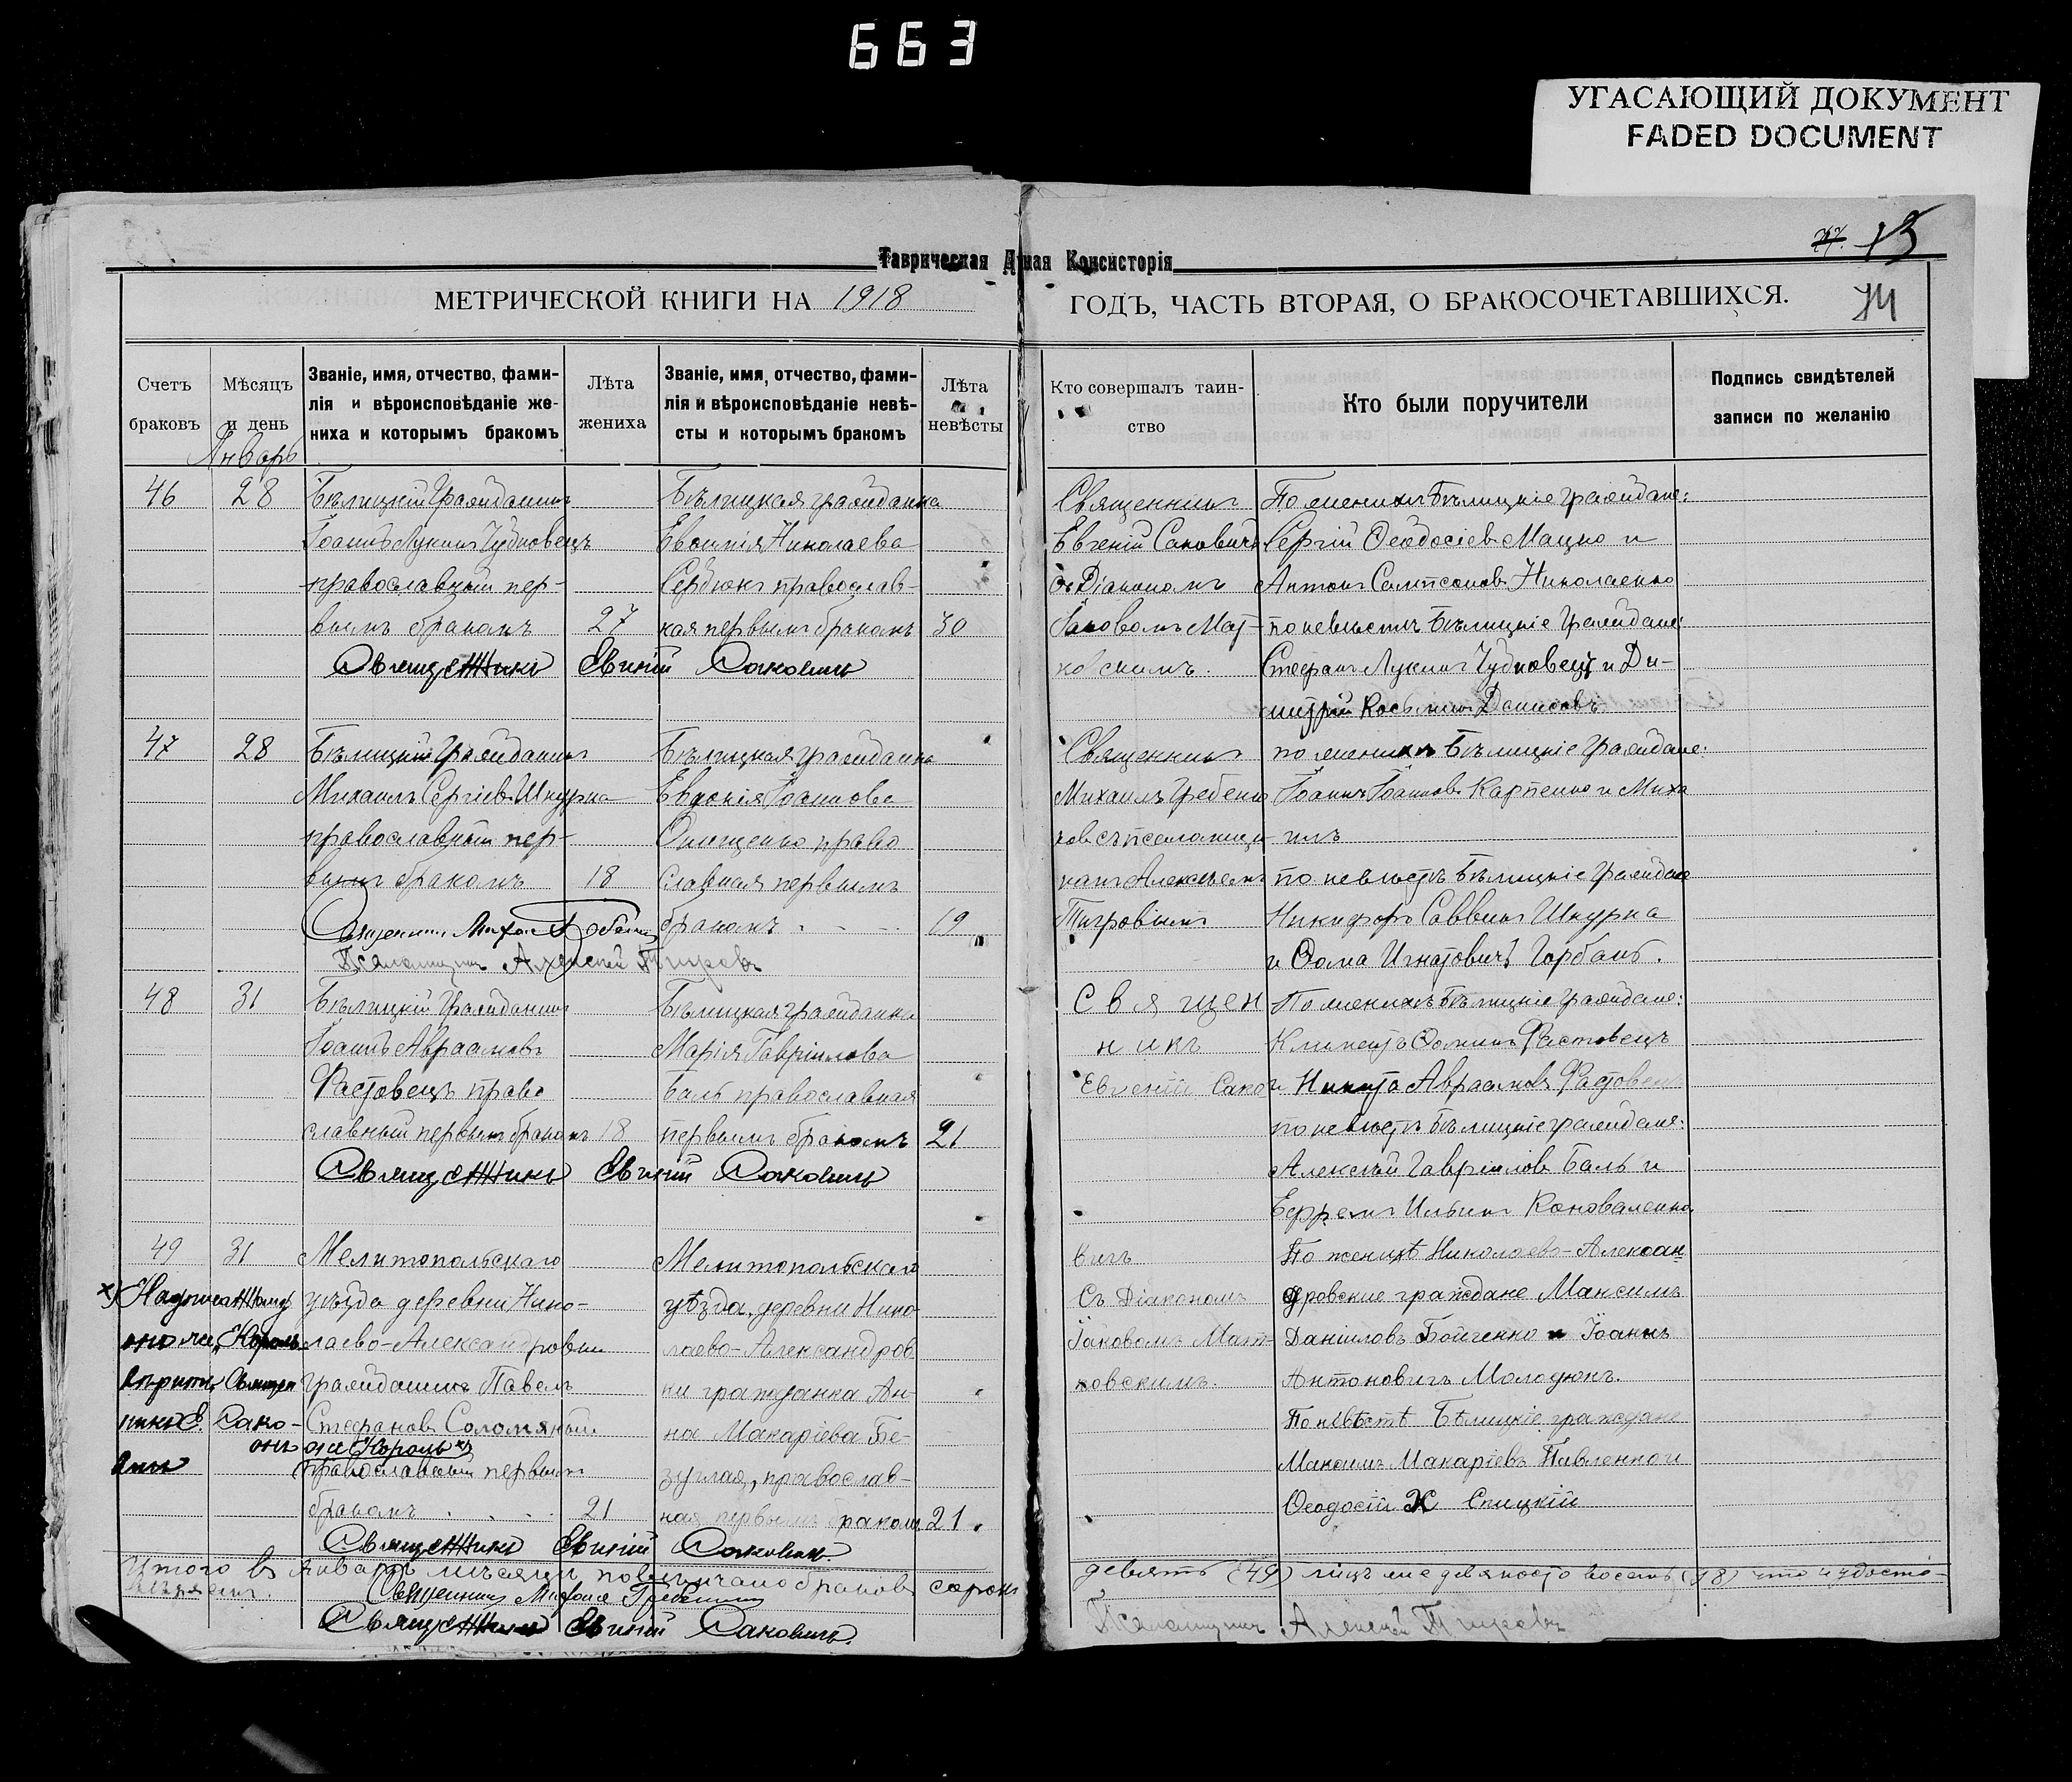 663
УГАСАЮЩИЙ ДОКУМЕНТ
FADED DOCUMENT
13
74
Таврическая Д ная Консисторія
МЕТРИЧЕСКОЙ КНИГИ НА 1918
ГОДЪ, ЧАСТЬ ВТОРАЯ, О БРАКОСОЧЕТАВШИХСЯ.
Счетъ браковъ
Мѣсяцъ и день
Званіе, имя, отчество, фами-
лія и вѣроисповѣданіе же-
ниха и которымъ бракомъ
Лѣта жениха
Званіе, имя, отчество, фами-
лія и вѣроисповѣданіе невѣ-
сты и которымъ бракомъ
Лѣта невѣсты
Кто совершалъ таин-
ство
Кто были поручители
Подпись свидѣтелей
записи по желанію
Январь
46
28
Бѣлицкій Гражданинъ
Іоаннъ Лукинъ Чудновецъ
православный пер-
вымъ бракомъ
27
Бѣлицкая гражданка
Евфимія Николаева
Сердюкъ православ-
ная первымъ бракомъ
30
Священникъ
Евгеній Саковичъ
съ Діакономъ
Іаковомъ Мат-
ковскимъ.
По женихѣ Бѣлицкіе граждане:
Сергій Ѳеодосіевъ Мацко и
Антонъ Сампсоновъ Николаенко
по невѣстѣ Бѣлицкіе граждане:
Стефанъ Лукинъ Чудновецъ и Ди-
митрій Косьминъ Денисовъ
Священникъ Евгеній Саковичъ
47
28
Бѣлицкій Гражданинъ
Михаилъ Сергіевъ Шкурка
православный пер-
вымъ бракомъ
18
Бѣлицкая гражданка
Евдокія Іоаннова
Онищенко право
славная первымъ
бракомъ
19
Священникъ
Михаилъ Гребенко
ковъ съ псаломщи-
комъ Алексѣемъ
Тигровымъ
по женихѣ Бѣлицкіе Граждане:
Іоаннъ Іоанновъ Карпенко и Миха
илъ
по невѣстѣ Бѣлицкіе Граждане
Никифоръ Саввинъ Шкурка
и Ѳома Игнатовичъ Горбань.
Священникъ
Псаломщикъ Алексей Тигровъ
48
31
Бѣлицкій Гражданинъ
Іоаннъ Авраамовъ
Фастовецъ право
славный первымъ бракомъ
18
Бѣлицкая гражданка
Марія Гавріилова
Баль православная
первымъ бракомъ
21
Священ
никъ
Евгеній Сако
По женихѣ Бѣлицкіе граждане:
Климентъ Ѳоминъ Фастовецъ
и Никита Авраамовъ Фастовецъ
по невѣстѣ Бѣлицкіе граждане:
Алексѣй Гавріиловъ Баль и
Ефремъ Ильинъ Коноваленко.
Священникъ Евгеній Саковичъ
49
31
Мелитопольскаго
уѣзда деревни Нико-
лаево-Александровки
гражданинъ Павелъ
Стефановъ Соломяный
онъ же Король x)
православный первымъ
бракомъ
21
Мелитопольскаго
уѣзда, деревни Нико
лаево-Александров
ки гражданка Ан-
на Макаріева Бе-
зуглая, православ-
ная первымъ бракомъ
21.
вичъ
Съ Діакономъ
Іаковомъ Мат-
ковскимъ.
По женихѣ Николаево-Алексан
дровские граждане Максимъ
Даніиловъ Бойченко и Іоаннъ
Антоновичъ Молодюкъ.
По невѣстѣ Бѣлицкіе граждане
Максимъ Макаріевъ Павленко и
Ѳеодосій Спицкій
x) Надписанному
онъ же, Король
вѣрить Священ
никъ Е. Сако-
вичъ
Священникъ Евгеній Саковичъ.
Итого въ Январѣ мѣсяцѣ повѣнчано браковъ сорокъ
девять (49) лицъ же девяносто восемь (98) что и удосто-
вѣряемъ.
Священникъ Михаилъ
Священникъ Евгеній Саковичъ.
Псаломщикъ Алексей Тигровъ